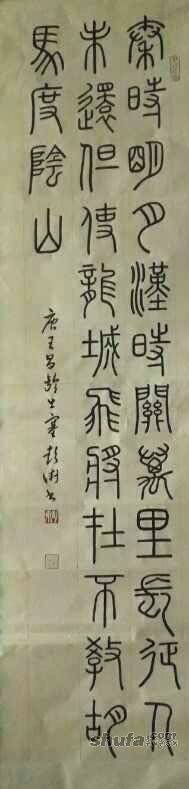 秦時明月漢時關萬里長征人
未還但使龍城飛將在不教胡
馬度陰山
唐王昌齡出塞
shufa.com